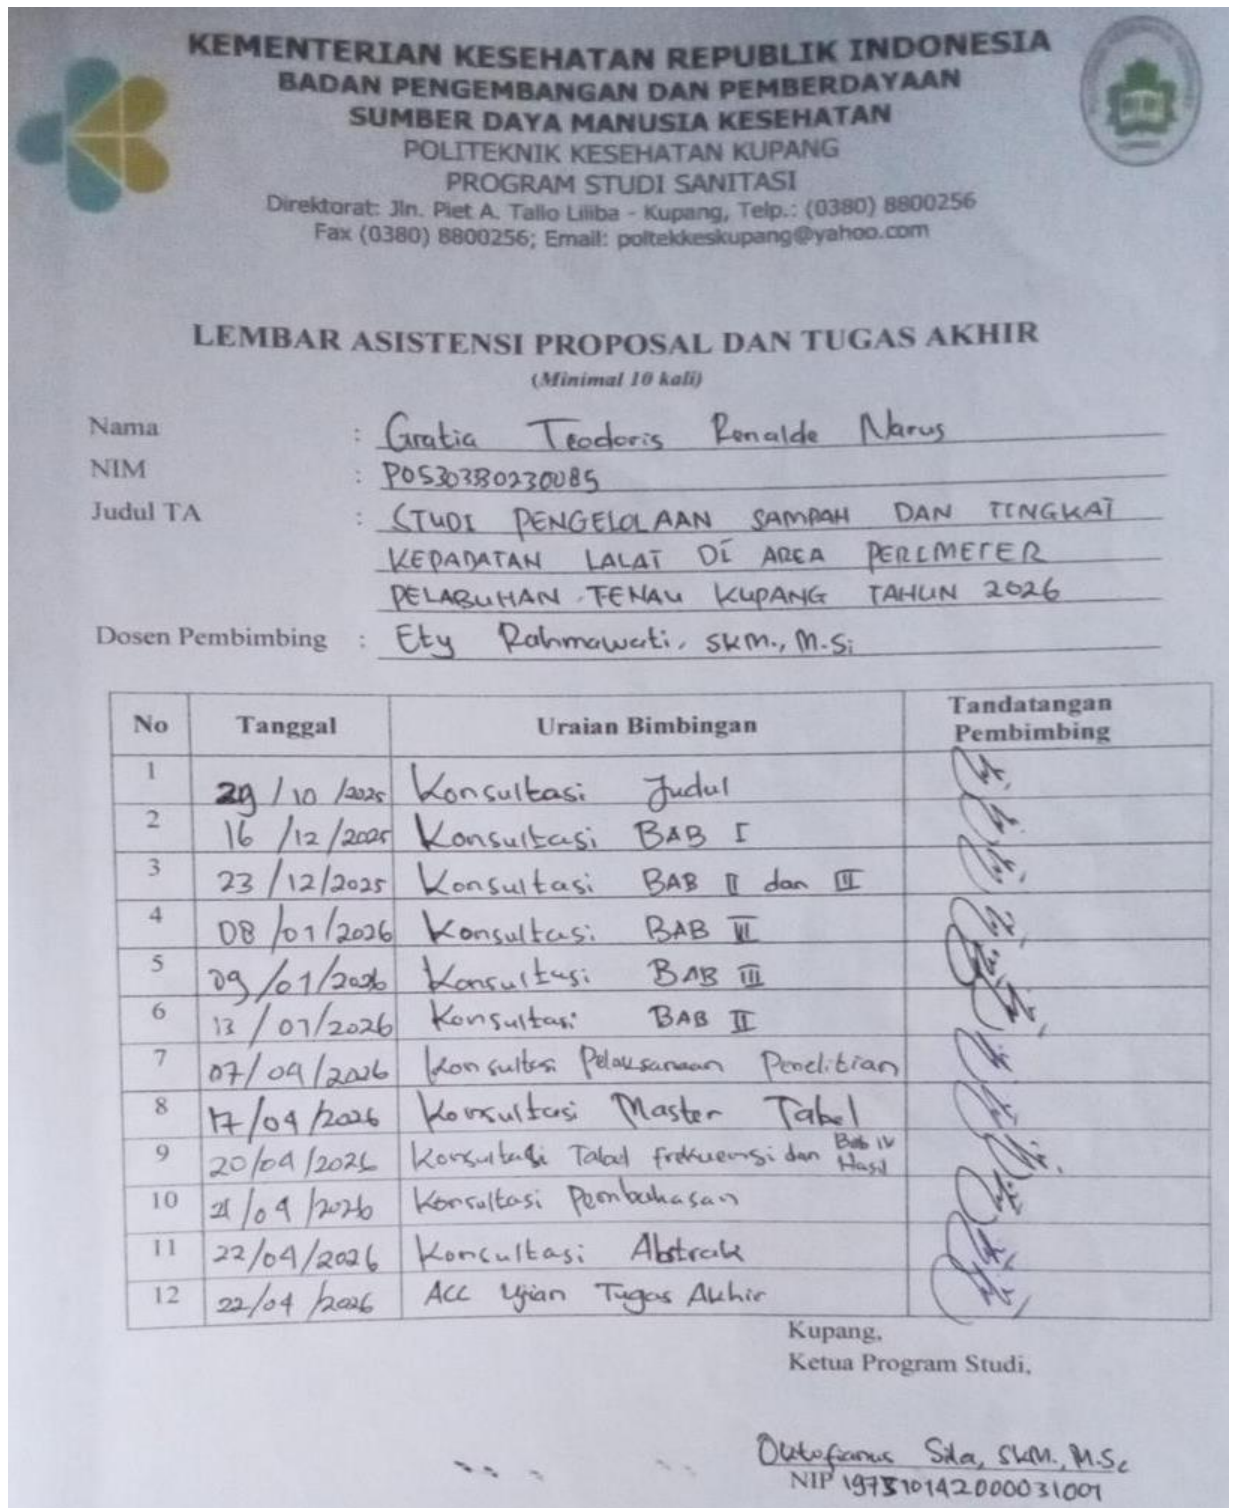 KEMENTERIAN KESEHATAN REPUBLIK INDONESIA
BADAN PENGEMBANGAN DAN PEMBERDAYAAN
SUMBER DAYA MANUSIA KESEHATAN
POLITEKNIK KESEHATAN KUPANG
PROGRAM STUDI SANITASI
Direktorat: Jln. Piet A. Tallo Liliba - Kupang, Telp.: (0380) 8800256
Fax (0380) 8800256; Email: poltekkeskupang@yahoo.com
LEMBAR ASISTENSI PROPOSAL DAN TUGAS AKHIR
(Minimal 10 kali)
Nama : Gratia Teodoris Renalde Narus
NIM : PO5303330230085
Judul TA : STUDI PENGELOLAAN SAMPAH DAN TINGKAT
KEPADATAN LALAT DI AREA PERIMETER
PELABUHAN TENAU KUPANG TAHUN 2026
Dosen Pembimbing : Ety Rahmawati, SKM., M.Si
No Tanggal Uraian Bimbingan Tandatangan Pembimbing
1 29/10/2025 Konsultasi Judul
2 16/12/2025 Konsultasi BAB I
3 23/12/2025 Konsultasi BAB II dan III
4 08/01/2026 Konsultasi BAB
5 09/01/2026 Konsultasi BAB III
6 13/01/2026 Konsultasi BAB II
7 07/04/2026 Konsultasi Pelaksanaan Penelitian
8 17/04/2026 Konsultasi Master Tabel
9 20/04/2026 Konsultasi Tabel frekuensi dan Bab IV Hasil
10 21/04/2026 Konsultasi Pembahasan
11 22/04/2026 Konsultasi Abstrak
12 22/04/2026 ACC Ujian Tugas Akhir
Kupang,
Ketua Program Studi,
Oktofianus Sila, SKM., M.Sc
NIP 197510142000031001